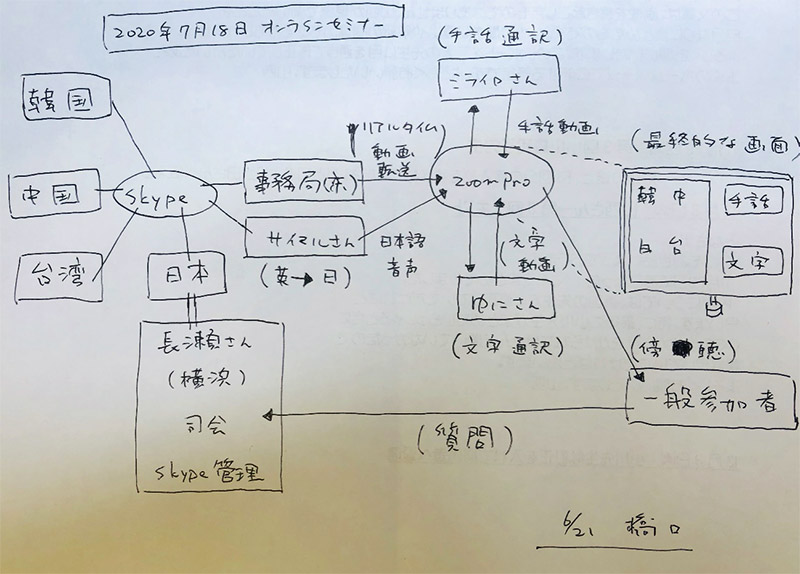 2020年7月18日 オンラインセミナー
(手話通訳)
ミライロさん
韓国
リアルタイム
動画
転送
手話動画
(最終的な画面)
中国
Skype
事務局(亦)
Zoom Pro
韓 中
日 台
手話
文字
台湾
日本
サイマルさん
(英→日)
日本語
音声
(文字
動画)
ゆにさん
(文字通訳)
長瀬さん
(横浜)
司会
Skype管理
(傍聴)
一般参加者
(質問)
6/21 橋口